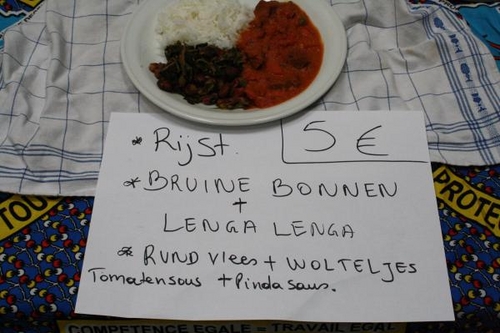 * Rijst. 5 €
* BRUINE BONNEN
+
LENGA LENGA
* RUND vlees + WOLTELJES
Tomatensous + Pindasaus.
TOU
PROTE
COMPETENCE EGALE = TRAVAIL EGAL